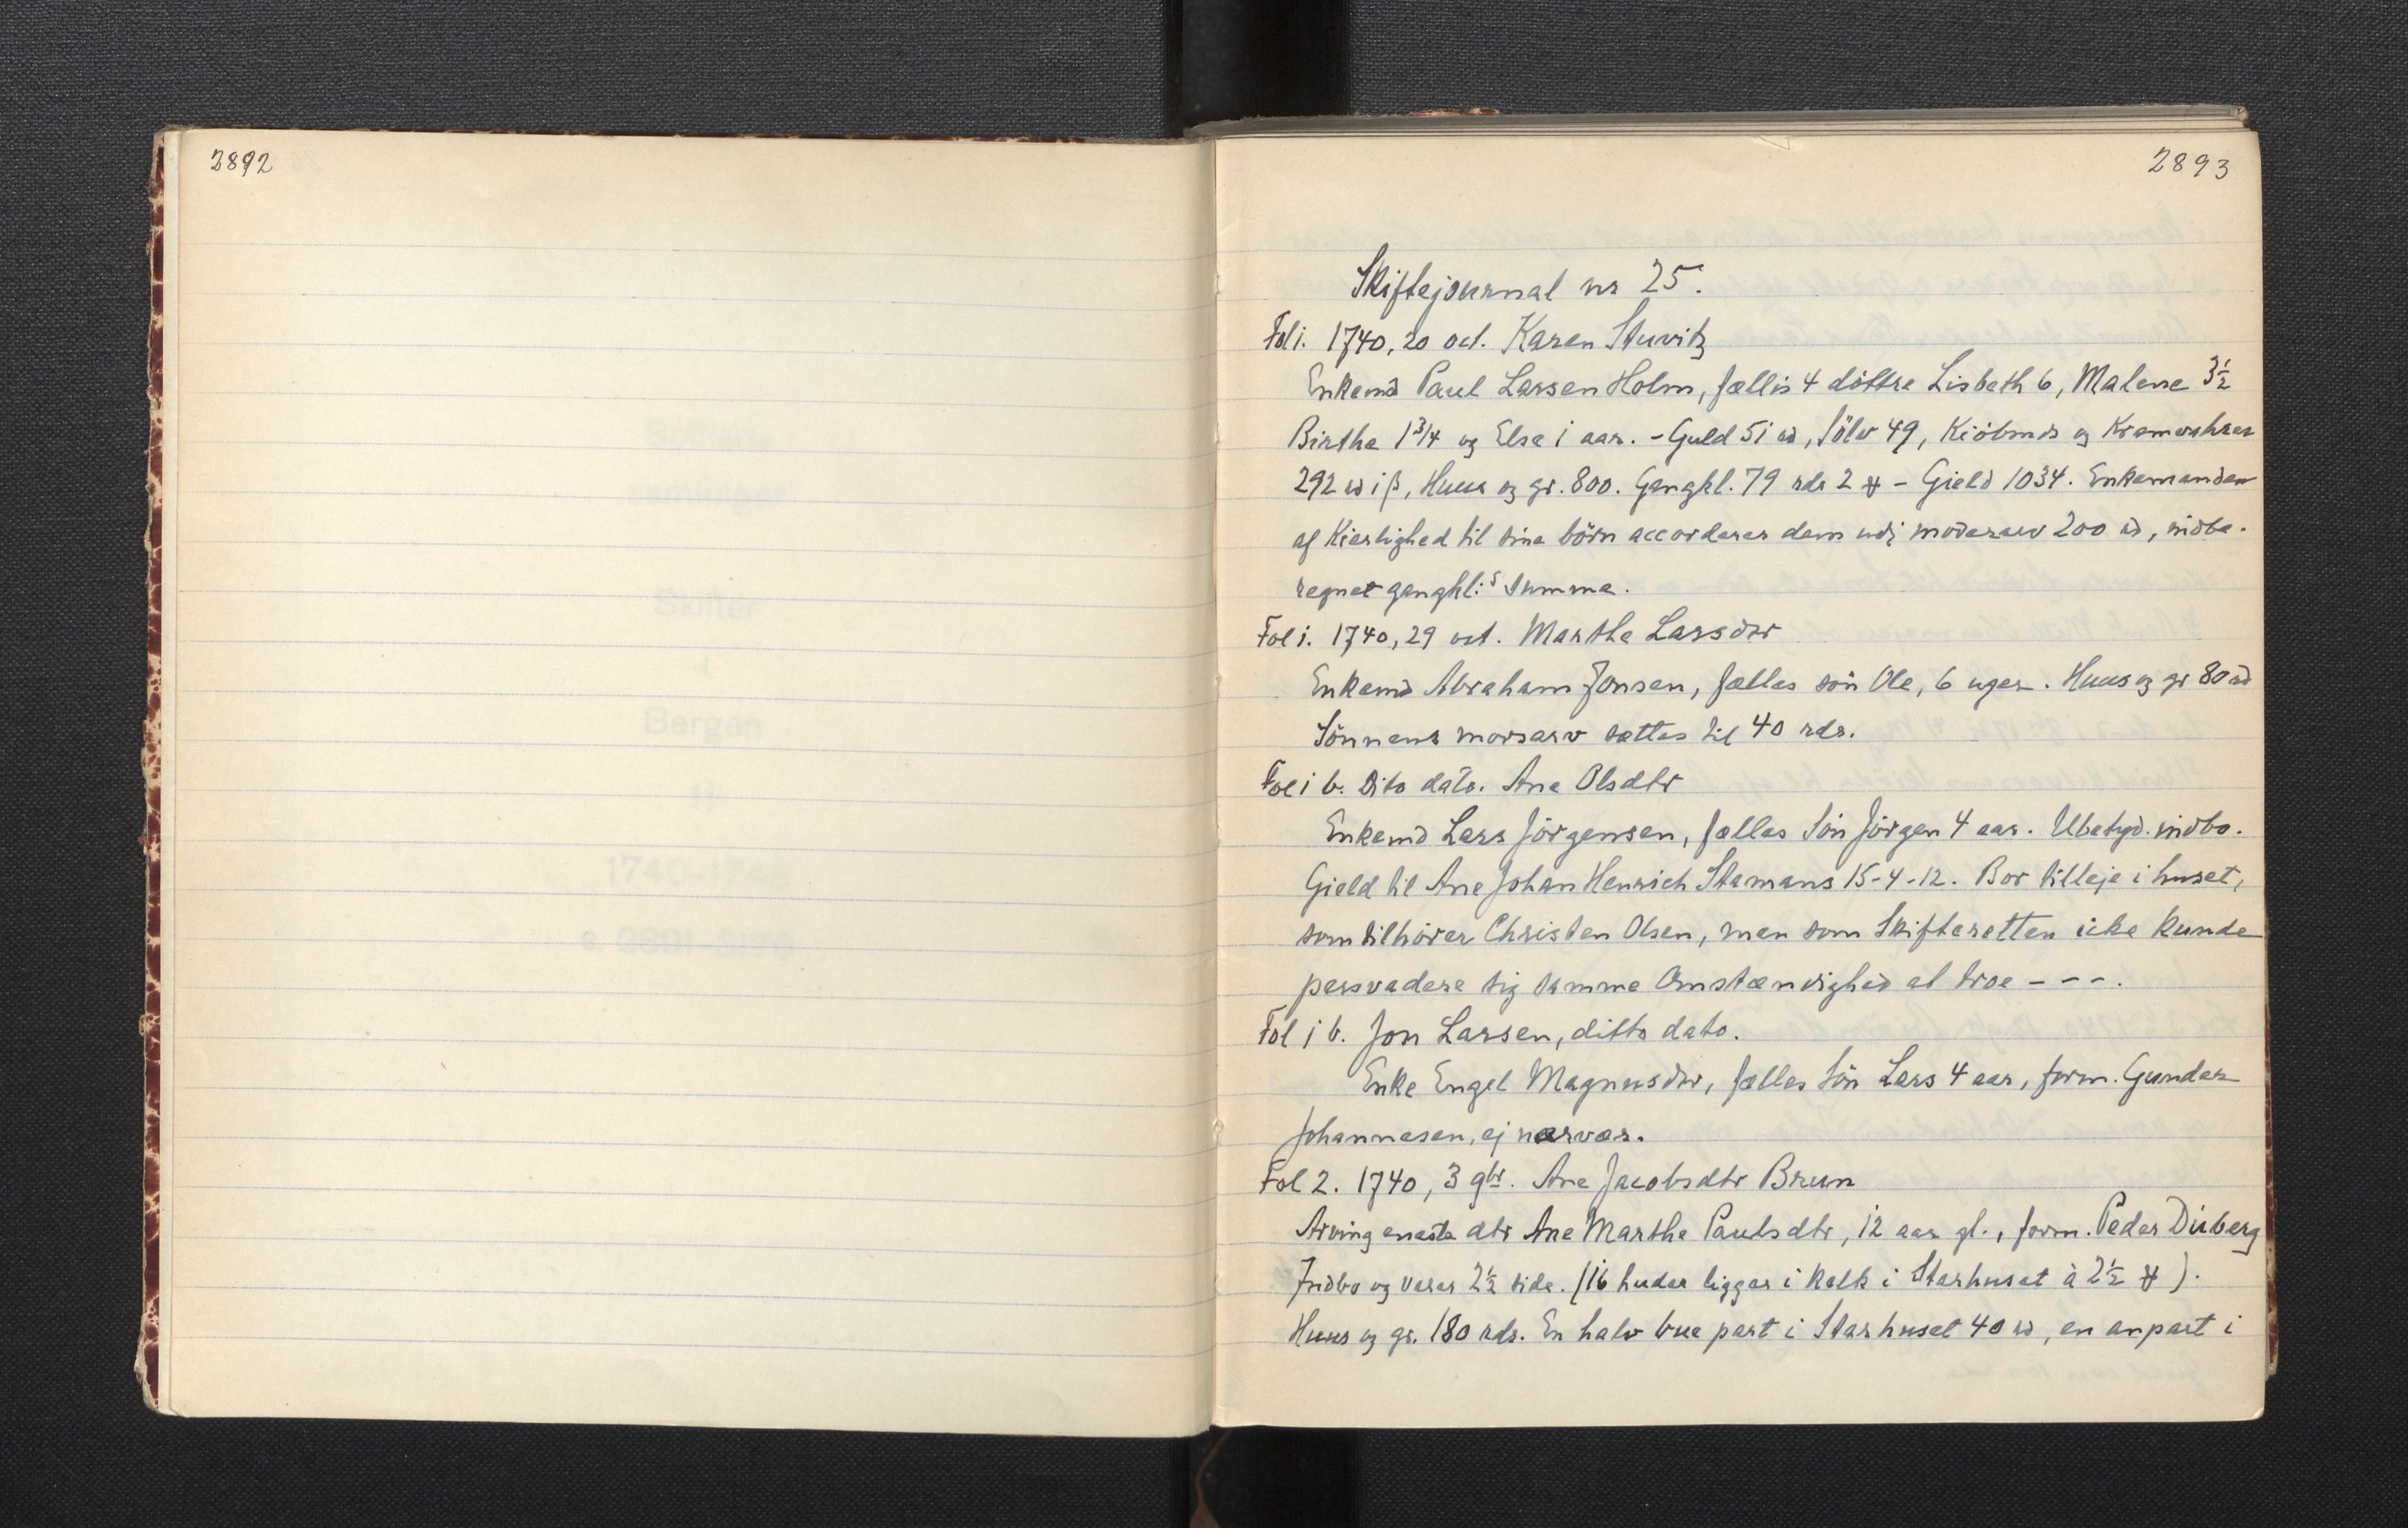 2892
2893
Skiftejournal nr 25.
Fol i. 1740, 20 oct. Karen Stuvitz
Enkemd Paul Larsen Holm, fællis 4 döttre Lisbeth 6, Malene 3½
Birthe 1 3/4 og Else i aar. - Guld 5i rd, Sölv 49, Kiöbmds og Kramvahrer
292 rd iß, Huus og gr. 800. Gangkl. 79 rdr 2 ℔ - Gield 1034. Enkemanden
af Kierlighed til sine börn accorderer dem udj möderarv 200 rd, indbe-
regnet gangkl:s Summa.
Fol i. 1740, 29 oct. Marthe Larsdtr
Enkemd Abraham Jonsen, fælles sön Ole, 6 uger. Huus og gr 80 rd
Sönnens morsarv sættes til 40 rdr.
Fol i b. Dito dato. Ane Olsdtr
Enkemd Lars Jörgensen, fælles Sön Jörgen 4 aar. Ubetyd. indbo.
Gield til Ane Johan Henrich Stamans 15-4-12. Bor tilleje i huset,
som tilhörer Christen Olsen, men som Skifteretten icke kunde
persvadere sig samme Omstændighed at troe - - -.
Fol i b. Jon Larsen, ditto dato.
Enke Engel Magnusdtr, fælles Sön Lars 4 aar, form. Gunder
Johannesen, ej nærvær.
Fol 2. 1740, 3 9br. Ane Jacobsdtr Brun
Arving eneste dtr Ane Marthe Paulsdtr, 12 aar gl., form. Peder Dirberg
Indbo og varer 2½ side. (16 huder ligger i kalk i Starhuset à 2½ ℔).
Huus og gr. 180 rdr. En halv bue part i Starhuset 40 rd, en anpart i